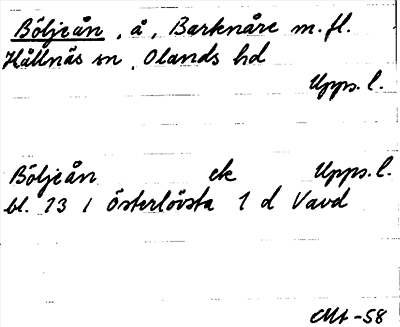 Böljeån, å, Barknåre m. fl.
Hållnäs sn, Olands hd
Upps. l.
Böljeån ek Upps. l.
bl. 13 1 Österlövsta 1 d Vavd
-58